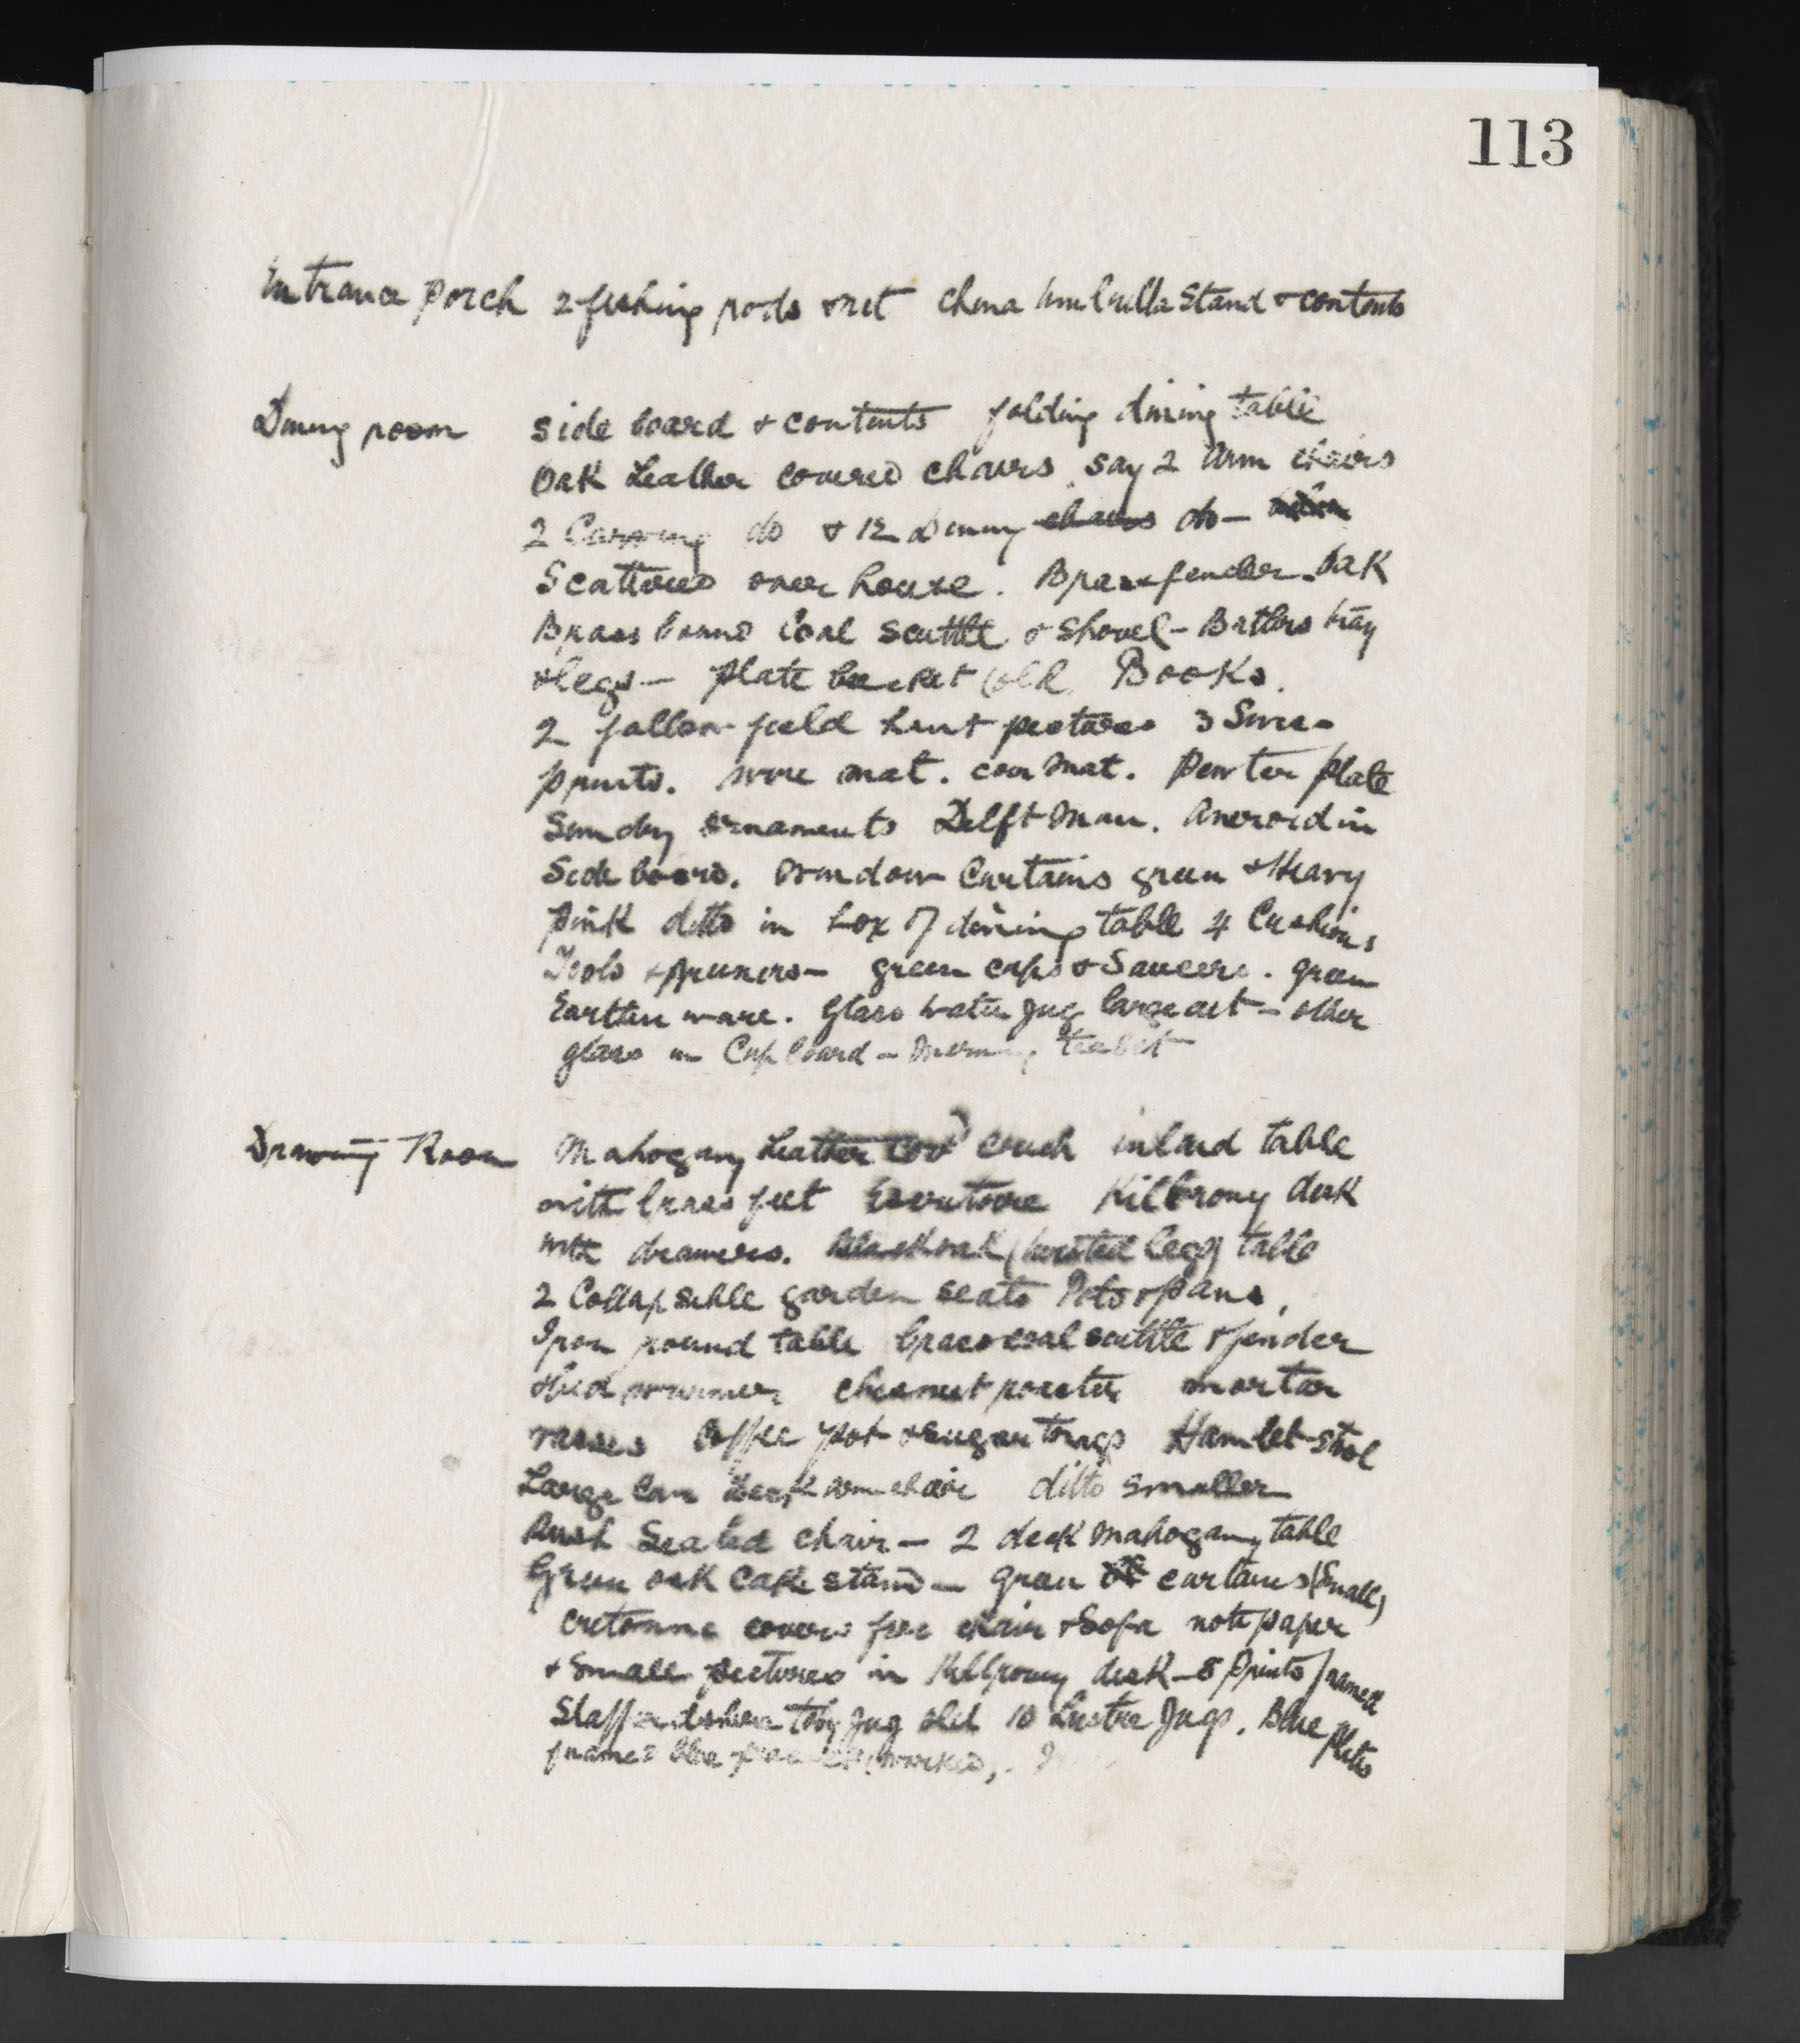 113
Entrance porch 2 fishing rods & net China Umbrella Stand & contents
Dining room side board & contents folding dining table
Oak Leather covered chairs say 2 arm chairs
2 Carving do & 12 Dining chairs do —
Scattered over house. Brass fender. Oak
Brass bound Coal scuttle & Shovel – Butlers tray
& legs — plate basket old Books.
2 fallow field hunt pictures 3
prints. wire mat. coir mat. Pewter plate
Sundry ornaments Delft man. aneroid in
Side board. Window Curtains green & Heavy
pink ditto in box of dining table 4 Cushions
Tools & pruners — green cups & Saucers. green
Earthen ware. Glass water jug large art – other
glass in Cupboard – morning tea set
Drawing Room Mahogany Leather Covd couch inlaid table
with brass feet Escritoire Kilbrony desk
with drawers. Black oak (twisted legs) table
2 Collapsable garden seats Pots & pans,
Iron round table brass coal scuttle & fender
& bed warmer chesnut roaster mortar
vases Coffee pot & sugar tongs Hamlet stool
Large arm chair ditto smaller
Rush Seated chair — 2 deck mahogany table
Green oak Cake stand — green curtains (Small)
cretonne covers for chair & Sofa note paper
& small pictures in Kilbrony desk – 8 prints framed
Staffordshire toby jug old 10 Lustre Jugs. Blue plates